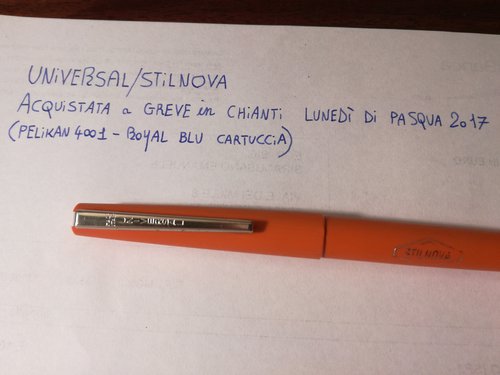 UNIVERSAL/STILNOVA
ACQUISTATA a GREVE in CHIANTI LUNEDÌ DI PASQUA 2017
(PELIKAN 4001 - ROYAL BLU CARTUCCIA)
STILNOVA